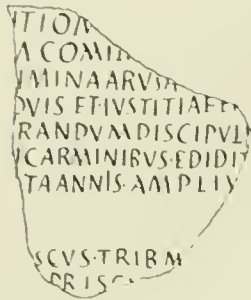 ITION
A COMIN
IMINA ARVSA
OVIS ET·IVSTITIA ET
RANDVM DISCIPVL
CARMINIBVS·EDIDIT
TA ANNIS·AMPLIV
SCVS·TRIB M
PRISC